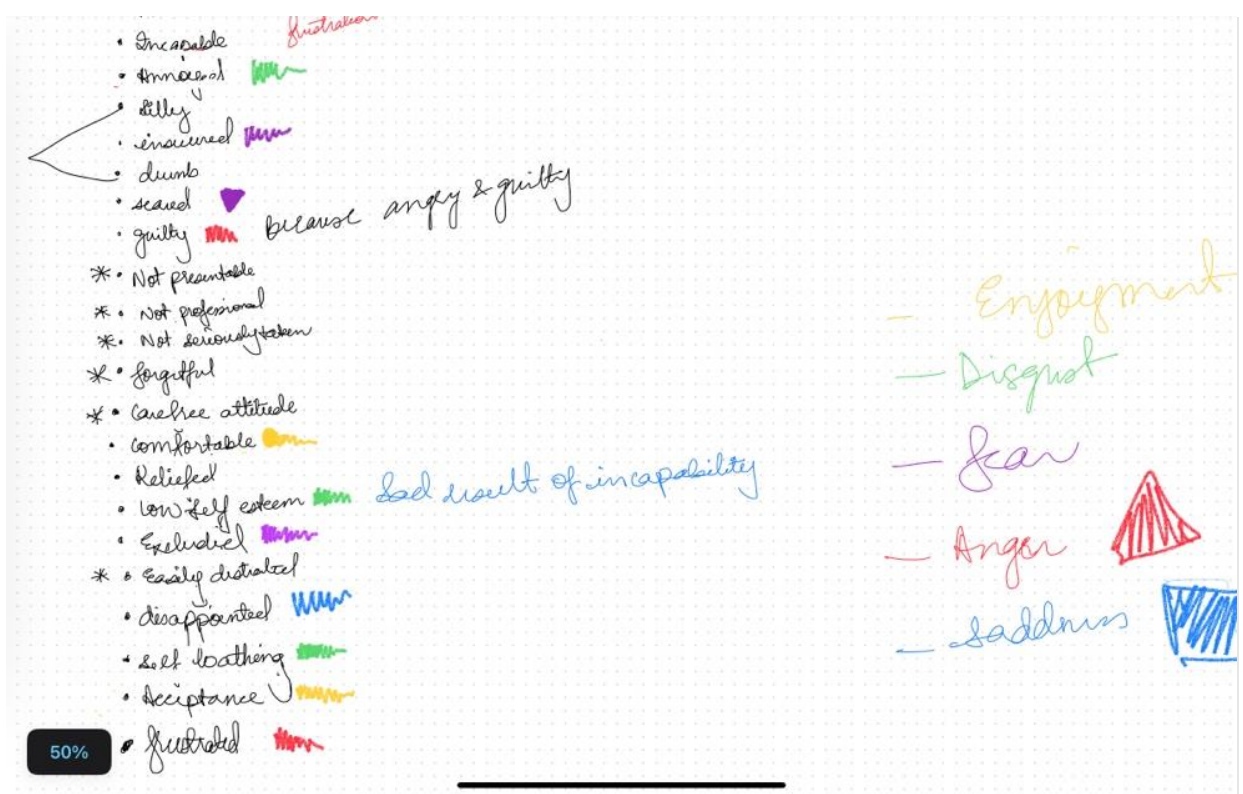 frustration
• Incapable
• Annoyed
• Silly
• insecured
• dumb
• scared
• guilty because angry & guilty
* • Not presentable
* • Not professional
* • Not seriously taken
* • forgetful
* • Carefree attitude
• comfortable
• Reliefed
• low self esteem Sad result of incapability
• Excluded
* • Easily distracted
• disappointed
• self loathing
• Acceptance
• frustrated
- Enjoyment
- Disgust
- fear
- Anger
- Saddness
50%